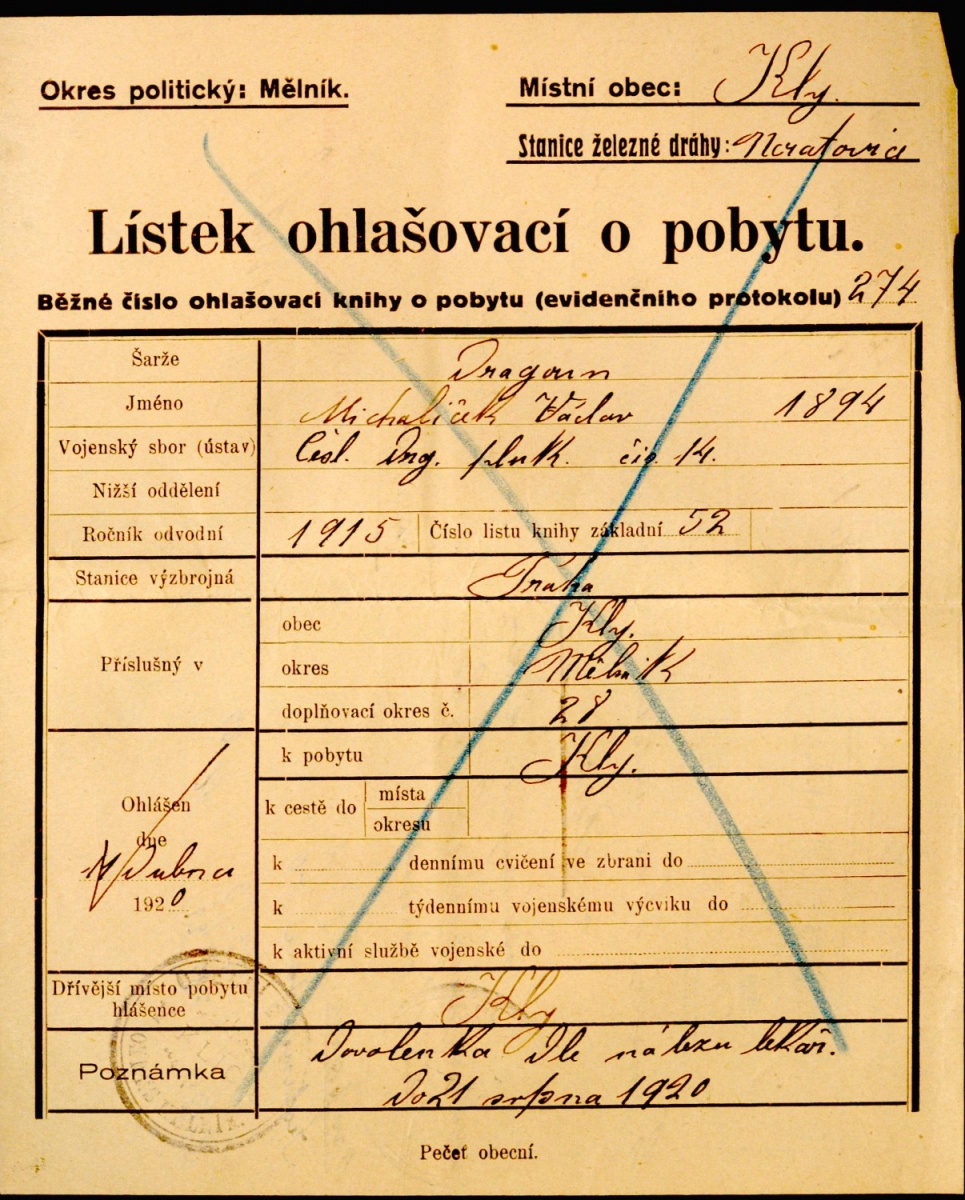 Okres politický: Mělník.
Místní obec: Kly.
Stanice železné dráhy: Neratovice
Lístek ohlašovací o pobytu.
Běžné číslo ohlašovací knihy o pobytu (evidenčního protokolu) 274
Šarže Dragoun
Jméno Michaliček Václav 1894
Vojenský sbor (ústav) Čsl. drg. pluk. čís. 14.
Nižší oddělení
Ročník odvodní 1915 Číslo listu knihy základní 52
Stanice výzbrojná Praha
Příslušný v
obec Kly.
okres Mělník
doplňovací okres č. 28
Ohlášen dne
Dubna
1920
k pobytu Kly.
k cestě do místa
okresu
k dennímu cvičení ve zbrani do
k týdennímu vojenskému výcviku do
k aktivní službě vojenské do
Dřívější místo pobytu hlášence Kly
Poznámka Dovolenka dle nálezu lékař.
do 21 srpna 1920
Pečeť obecní.